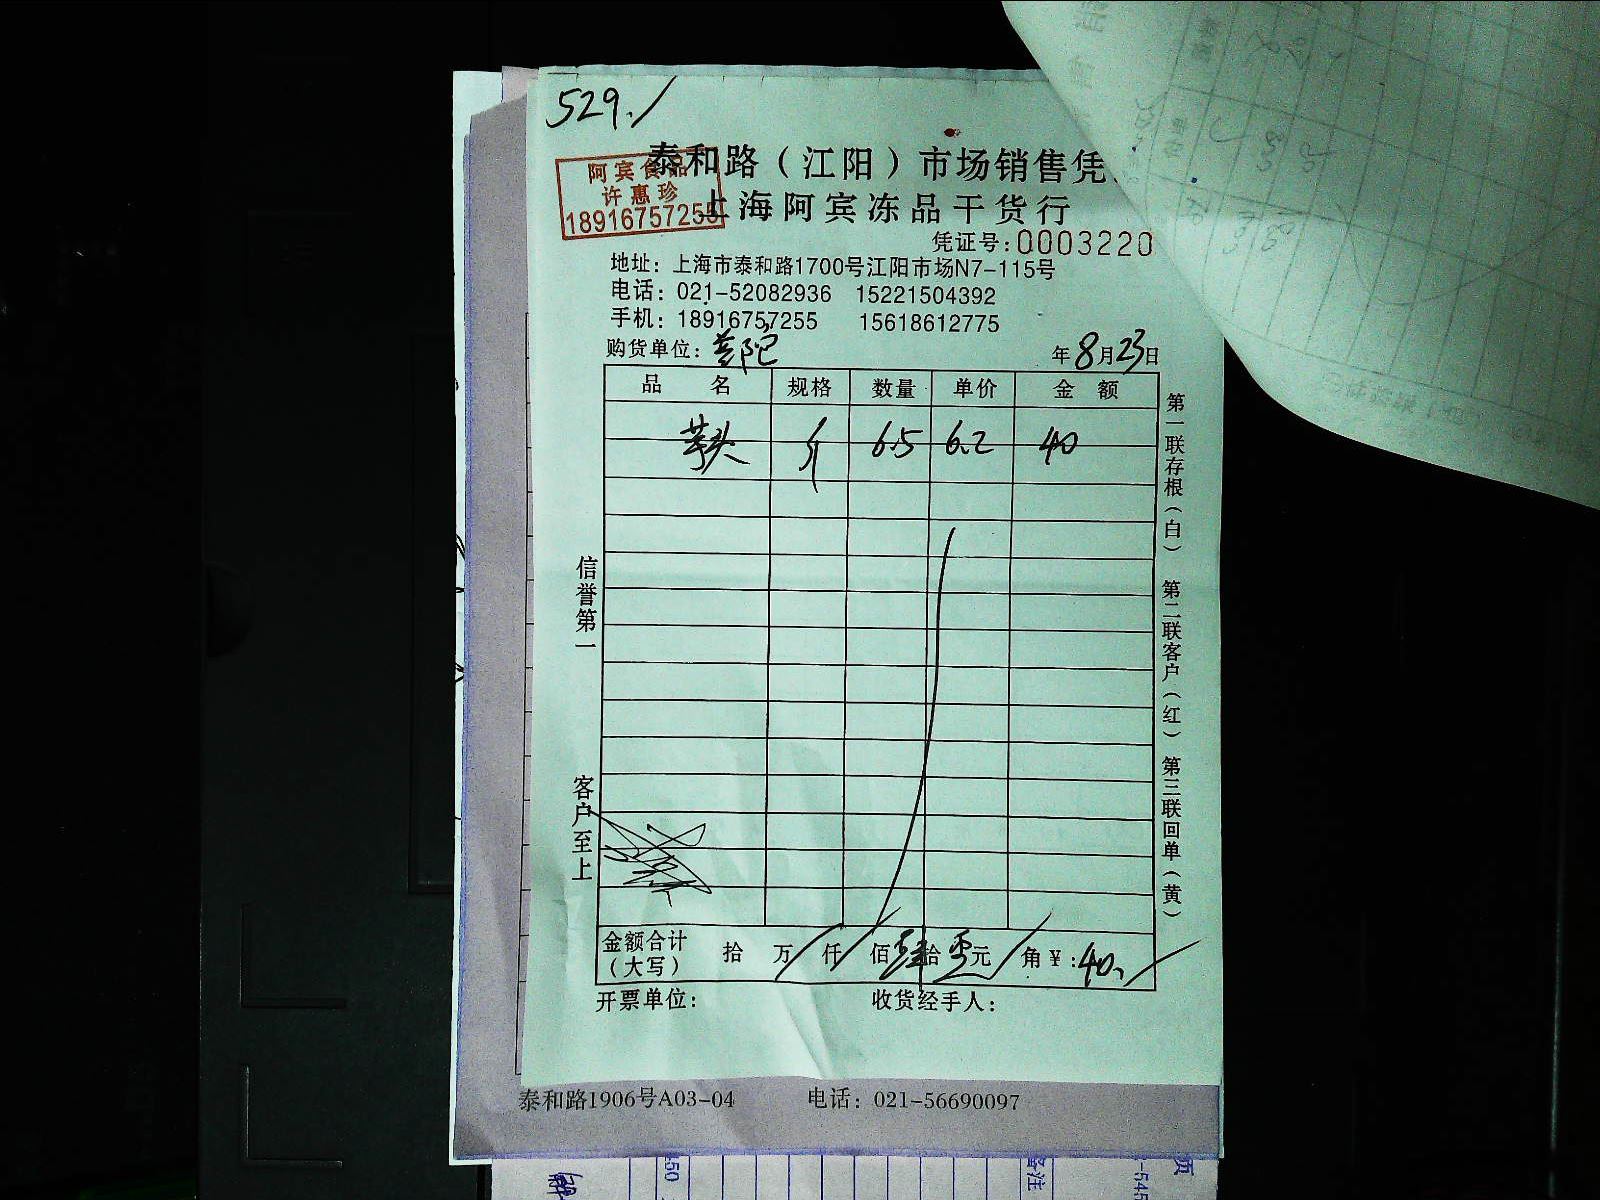 529./
泰和路（江阳）市场销售凭
阿宾食品
许惠珍
18916757255
上海阿宾冻品干货行
凭证号:0003220
地址：上海市泰和路1700号江阳市场N7-115号
电话：021-52082936 15221504392
手机：18916757255 15618612775
购货单位：普陀 年8月23日
品 名 规格 数量 单价 金 额
芋头 斤 6.5 6.2 40
第一联存根（白） 第二联客户（红） 第三联回单（黄）
信誉第一
客户至上
金额合计（大写） 拾 万 仟 佰 肆 拾 零 元 角 ¥:40.
开票单位: 收货经手人:
泰和路1906号A03-04 电话：021-56690097